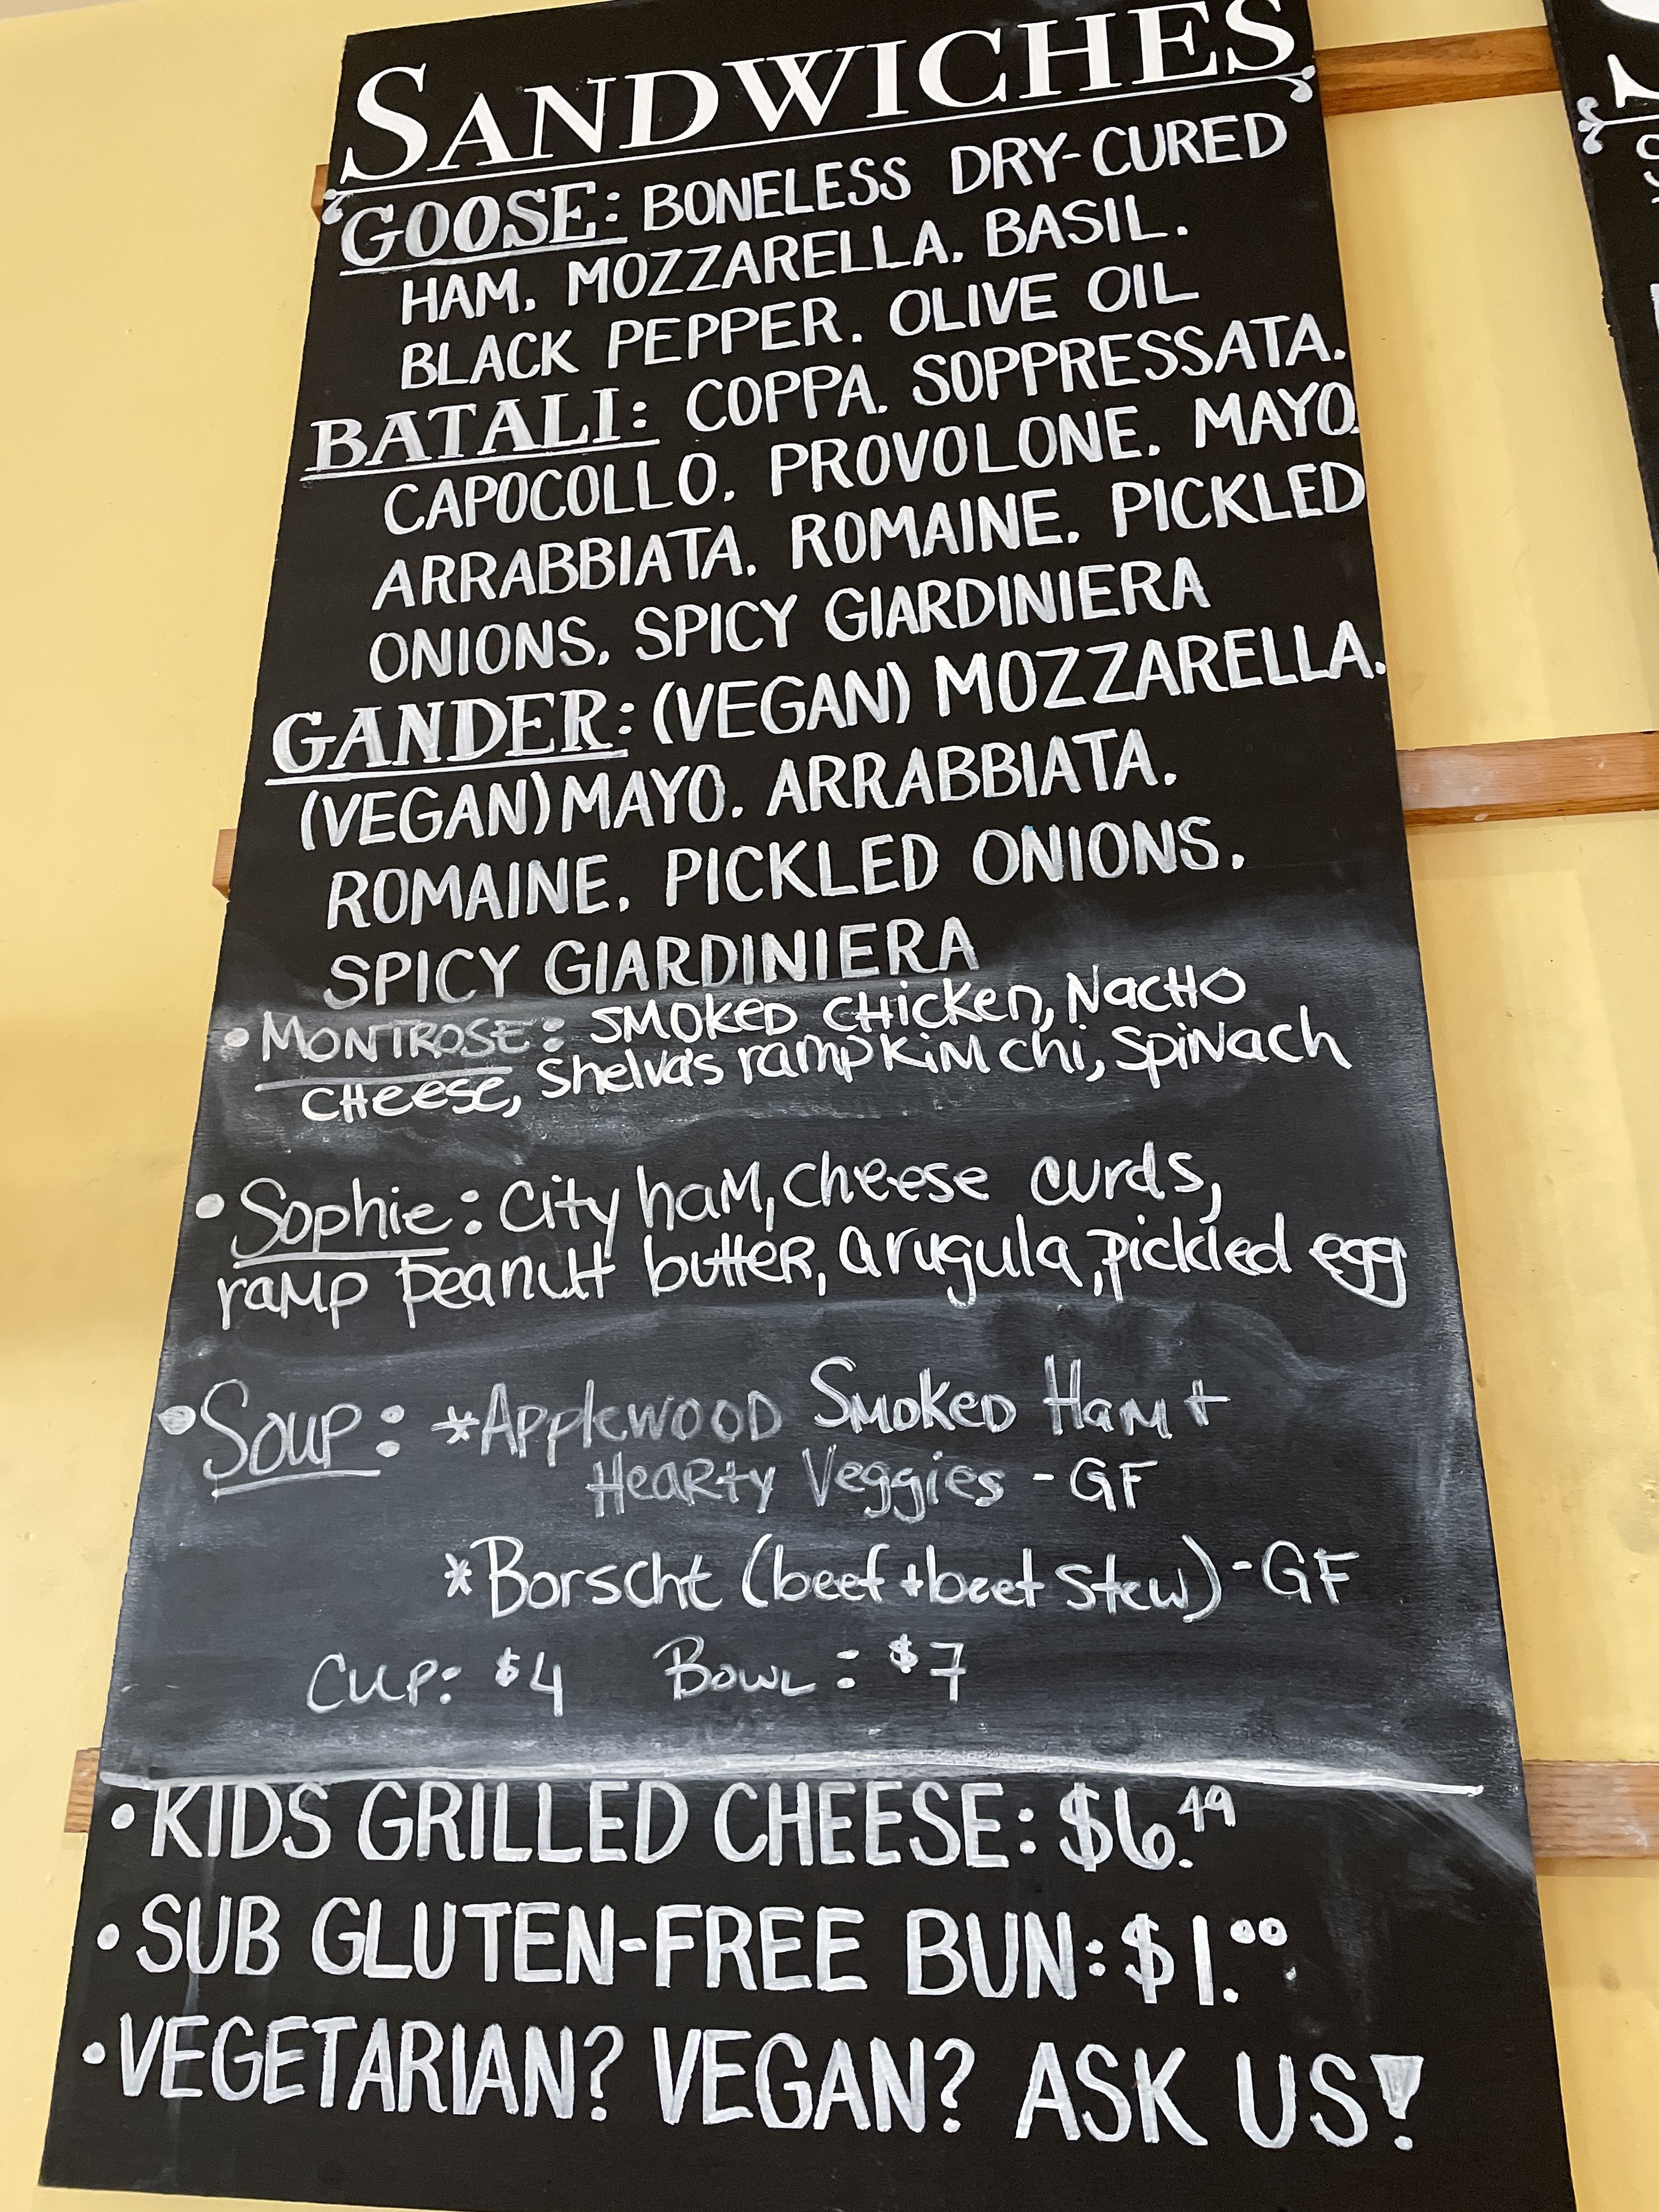 SANDWICHES
GOOSE: BONELESS DRY-CURED
HAM. MOZZARELLA. BASIL.
BLACK PEPPER. OLIVE OIL
BATALI: COPPA. SOPPRESSATA.
CAPOCOLLO. PROVOLONE. MAYO.
ARRABBIATA. ROMAINE. PICKLED
ONIONS. SPICY GIARDINIERA
GANDER: (VEGAN) MOZZARELLA.
(VEGAN) MAYO. ARRABBIATA.
ROMAINE. PICKLED ONIONS.
SPICY GIARDINIERA
• MONTROSE: SMOKED CHICKEN, NACHO
CHEESE, Shelva's ramp KiMchi, SpiNach
• Sophie: City haM, cheese curds,
raMp peanutt buttER, arugula, pickled egg
• Soup: *Applewood Smoked Ham +
Hearty Veggies - GF
*Borscht (beef + beet stew) - GF
Cup: $4 Bowl: $7
• KIDS GRILLED CHEESE: $6.49
• SUB GLUTEN-FREE BUN: $1.00
• VEGETARIAN? VEGAN? ASK US!